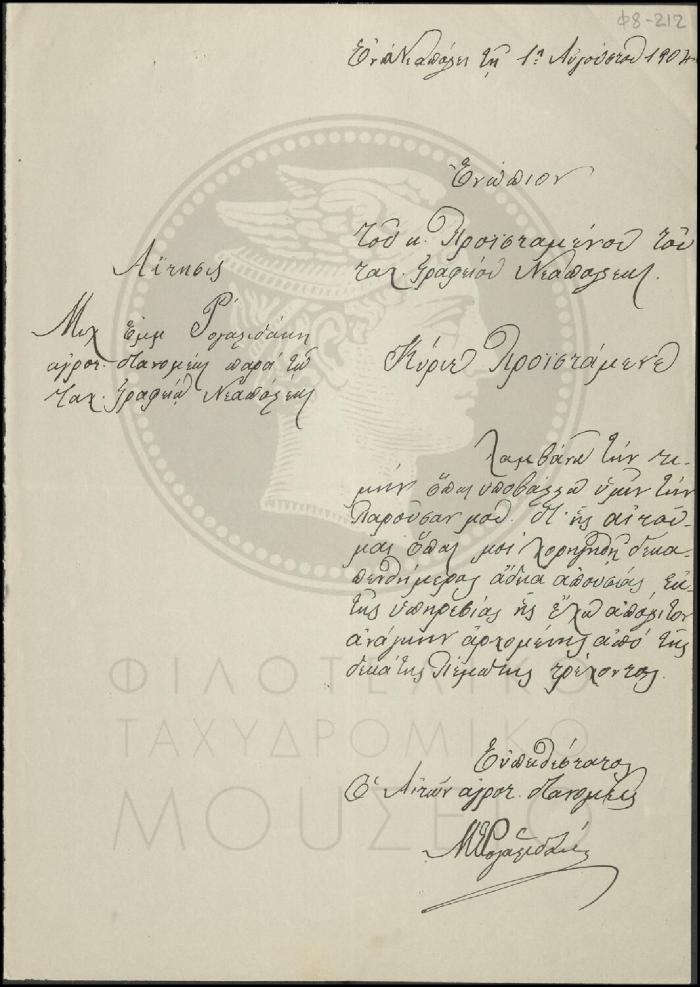 Φ8-212
Ἐν Νεαπόλει τῇ 1ῃ Αὐγούστου 1904
Ἐνώπιον
τοῦ κ. Προϊσταμένου τοῦ
ταχ. Γραφείου Νεαπόλεως.
Αἴτησις
Μιχ Ἐμμ Ρογαλιδάκη
ἀγροτ. διανομέως παρὰ τῷ
ταχ. Γραφείῳ Νεαπόλεως
Κύριε Προϊστάμενε
Λαμβάνω τὴν τι-
μὴν ὅπως ὑποβάλλω ὑμῖν τὴν
παροῦσαν μου δι' ἧς αἰτοῦ-
μαι ὅπως μοι χορηγηθῇ δεκα-
πενθήμερος ἄδεια ἀπουσίας ἐκ
τῆς ὑπηρεσίας ἧς ἔχω ἀπόλυτον
ἀνάγκην ἀρχομένης ἀπὸ τῆς
δεκάτης πέμπτης τρέχοντος.
Εὐπειθέστατος
Ὁ Αἰτῶν ἀγροτ. διανομεύς
ΜΕΡογαλιδάκης
ΦΙΛΟΤΕΛΙΚΟ
ΤΑΧΥΔΡΟΜΙΚΟ
ΜΟΥΣΕΙΟ